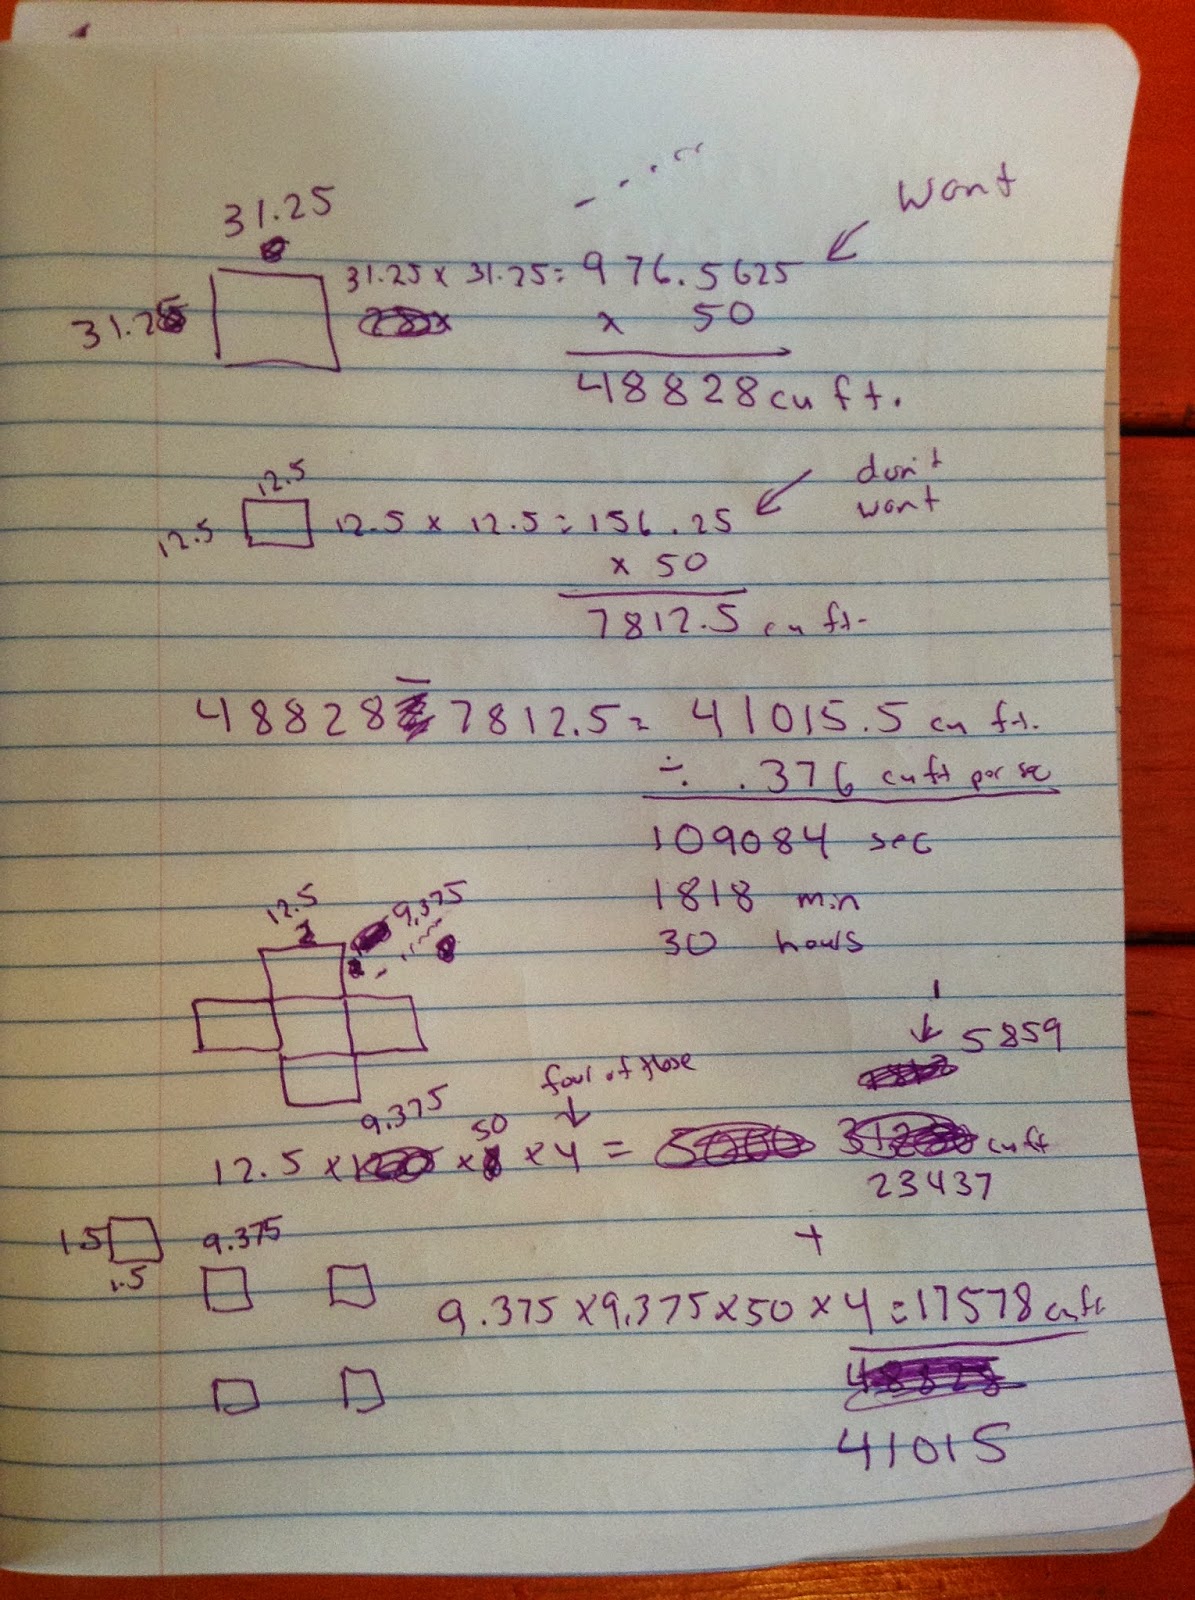 want
31.25
31.25 31.25 x 31.25 = 976.5625
x 50
48828 cu ft.
12.5
don't
want
12.5 12.5 x 12.5 = 156.25
x 50
7812.5 cu ft.
48828 - 7812.5 = 41015.5 cu ft.
÷ .376 cuft per sec
109084 sec
1818 min
30 hours
12.5
9.375
1
5859
four of those
9.375
50
12.5 x x x 4 = cuft
23437
1.5
1.5
9.375
+
9.375 x 9.375 x 50 x 4 = 17578 cuft
41015